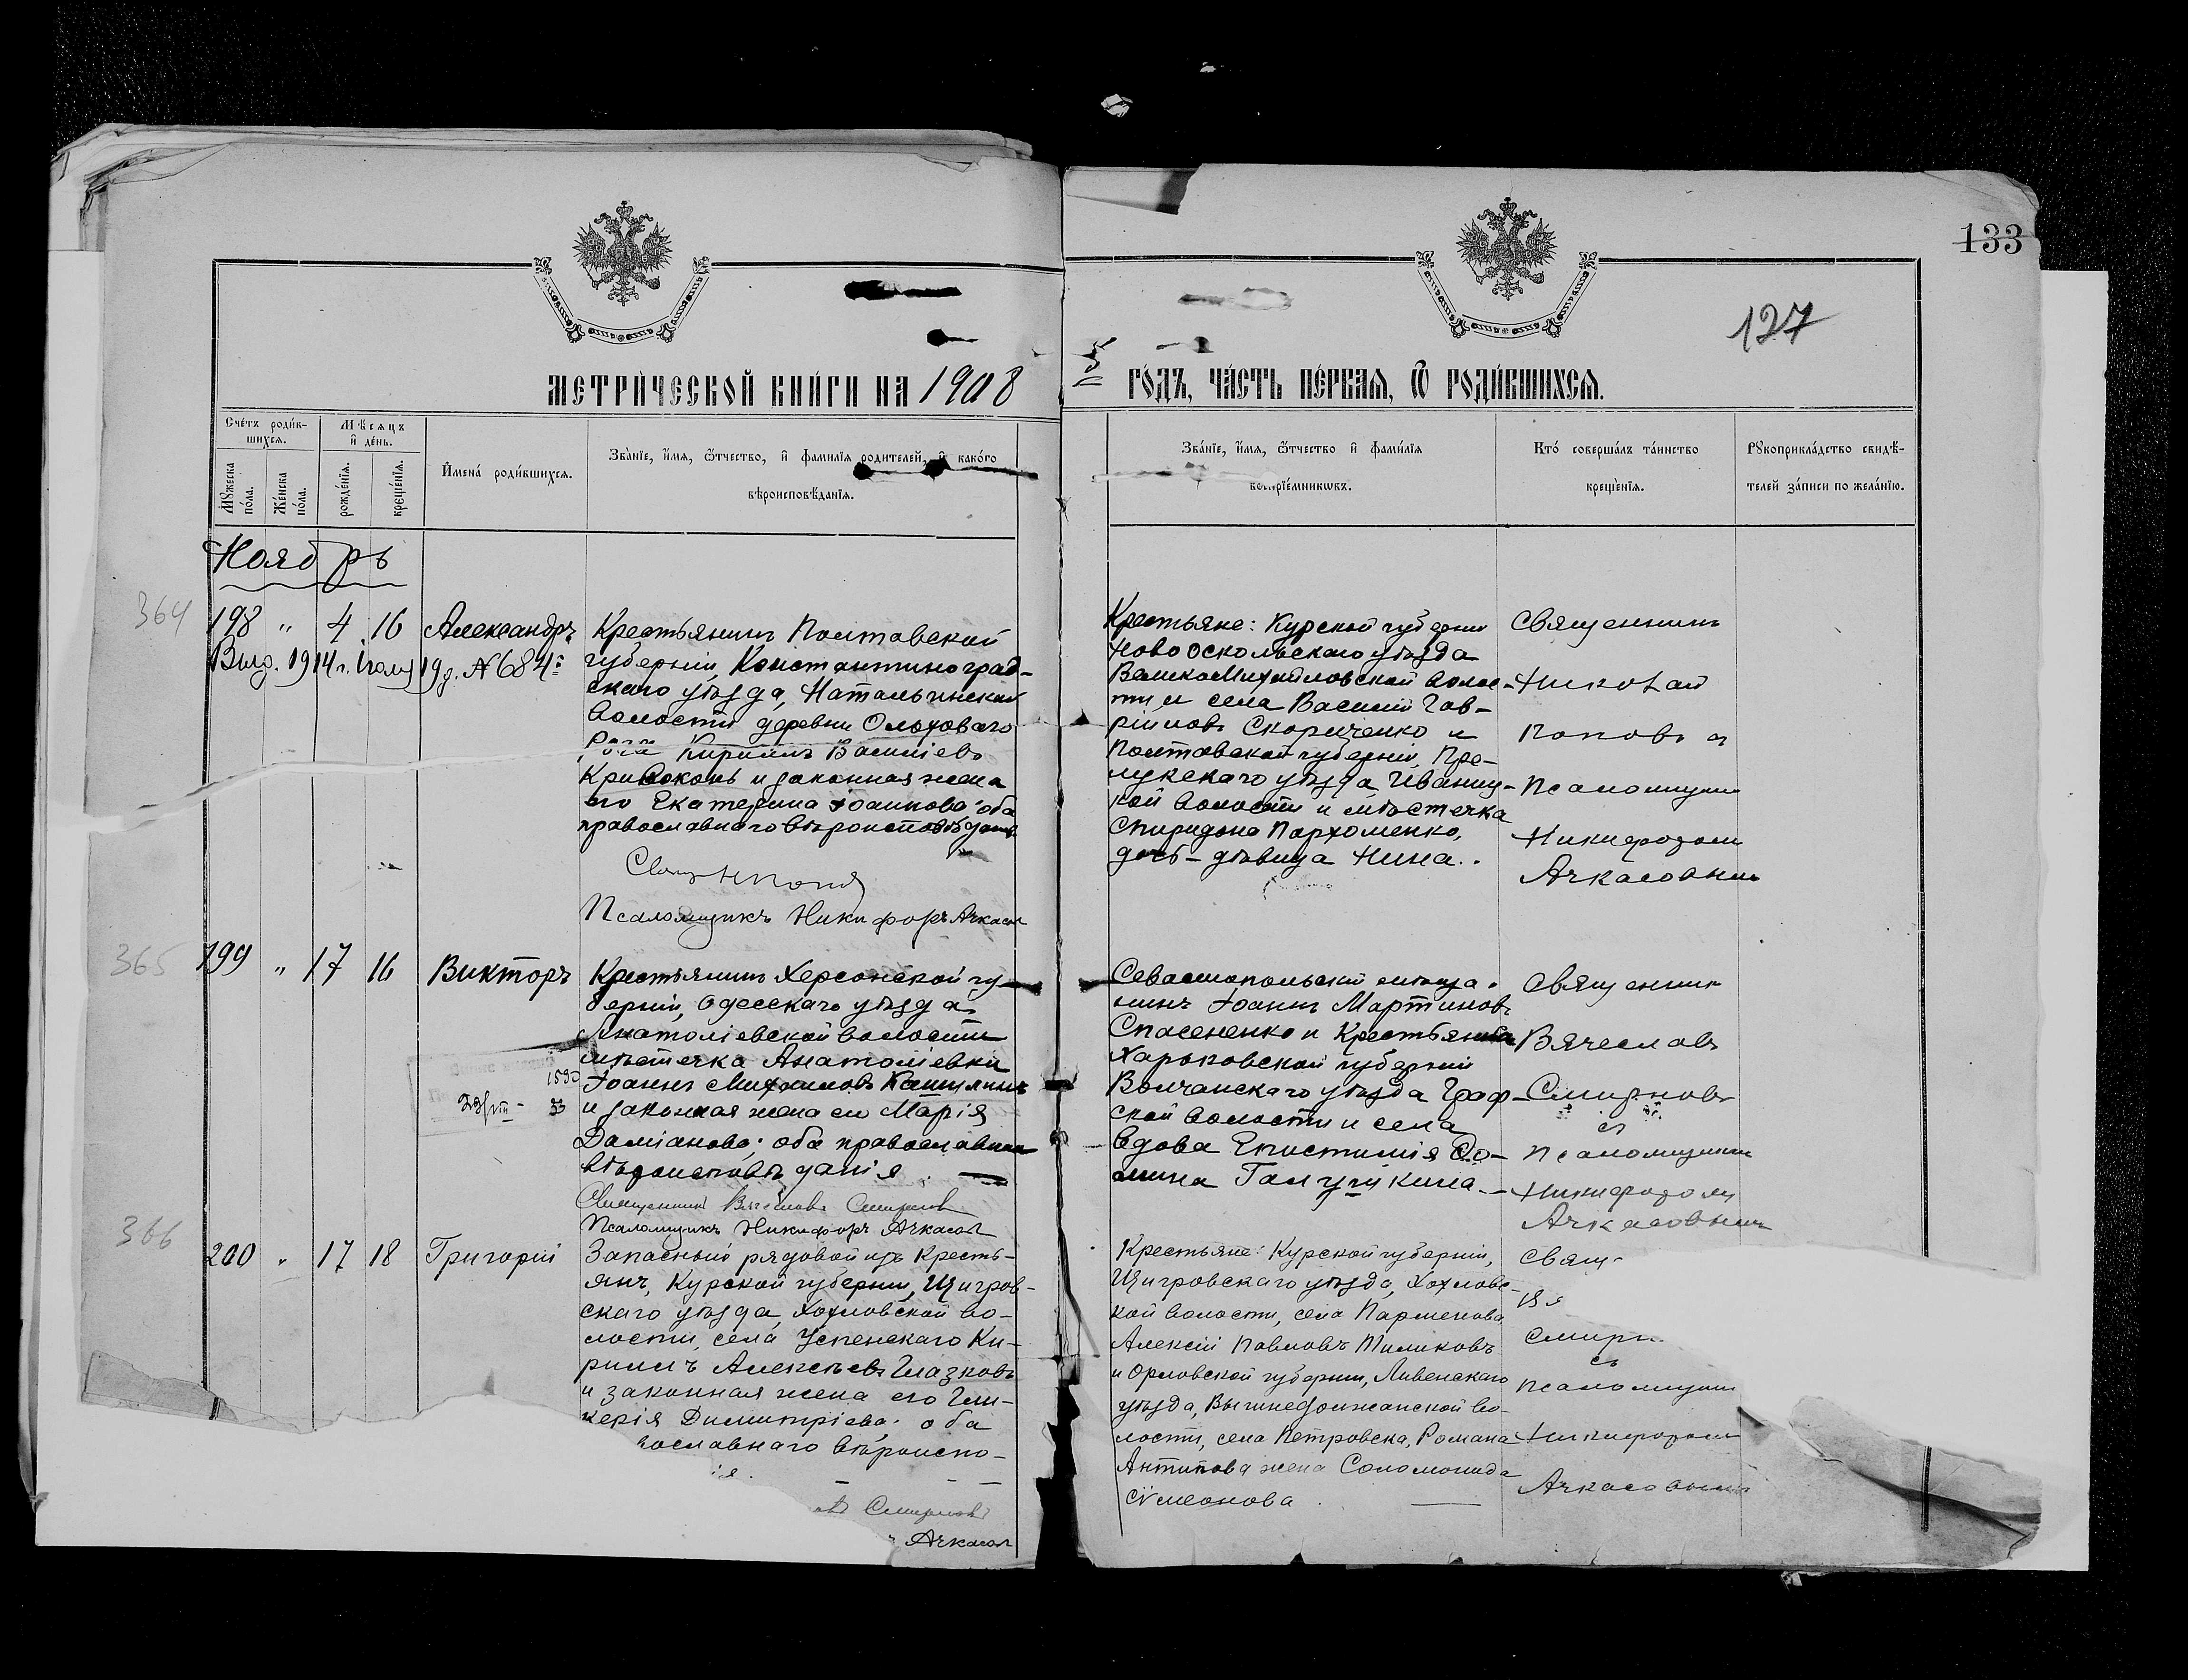 133
127
МЕТРИ́ЧЕСКОЙ КНИ́ГИ НА 1908
ГО́ДЪ, ЧА́СТЬ ПЕ́РВАЯ, Ѿ РОДИ́ВШИХСЯ.
Сче́тъ роди́в-
шихся.
Мѣсяцъ
и де́нь.
Мꙋ́жеска
по́ла.
Же́нска
по́ла.
рожде́нїя.
креще́нїя.
И́мена́ роди́вшихся.
Зва́нїе, и́мя, ѻ́тчество, и фами́лїя родителей, и како́го
вѣроисповѣ́данїя.
Зва́нїе, и́мя, ѻ́тчество и фами́лїя
воспрїе́мникѡвъ.
Кто́ соверша́лъ та́инство
креще́нїя.
Рꙋкоприкла́дство свидѣ́-
телей за́писи по жела́нїю.
Ноябрь
364
198 " 4 16 Александръ
Выд. 1914 г. Іюля 19 д. № 684
Крестьянинъ Полтавской
губерніи, Константиноград-
скаго уѣзда, Натальинской
волости деревни Ольховаго
Рога Кириллъ Василіевъ
Кривоконь и законная жена
его Екатерина Іоаннова; оба
православнаго вѣроисповѣданія
Псаломщикъ Никифоръ Ачкасов
Крестьяне: Курской губерніи
Новооскольскаго уѣзда
ВеликоМихайловской волос-
ти и села Василій Гав-
ріиловъ Скориченко и
Полтавской губерніи, При-
лукскаго уѣзда, Иваниц-
кой волости и мѣстечка
Спиридона Пархоменко,
дочь-дѣвица Нина.
Священникъ
Николай
Поповъ с
Псаломщик
Никифоромъ
Ачкасовымъ
365
199 " 17 16 Викторъ
Крестьянинъ Херсонской гу-
берніи, Одесскаго уѣзда
Анатоліевской волости
мѣстечка Анатоліевки
Іоаннъ Михаиловъ
и законная жена его Марія
Даміанова; оба православнаго
вѣроисповѣданія.
Священникъ Вячеславъ Смирнов
Псаломщикъ Никифоръ Ачкасов
Севастопольскій мѣща-
нинъ Іоаннъ Мартиновъ
Спасененко и Крестьянка
Харьковской губерніи
Волчанскаго уѣзда Граф-
ской волости и села
вдова Епистимія Фо-
мина
Священник
Вячеславъ
Смирновъ
съ
Псаломщикомъ
Никифоромъ
Ачкасовымъ
366
200 " 17 18 Григорій
Запасный рядовой изъ Кресть-
янъ, Курской губерніи, Щигров-
скаго уѣзда, Хохловской во-
лости, села Успенскаго Ки-
риллъ Алексѣевъ Глазковъ
и законная жена его Гли-
керія Димитріева; оба
вославнаго вѣроиспо-
ія.
Смирновъ
Ачкасов
Крестьяне: Курской губерніи,
Щигровскаго уѣзда, Хохловс-
кой волости, села Парменова,
Алексій Павловъ Тиликовъ
и Орловской губерніи, Ливенскаго
уѣзда, Вышнедолжанской во-
лости, села Петровска, Романа
Антипова жена Соломонида
Сѵмеонова.
Свящ-
Вя
Смирн
съ
Псаломщик
Никифоромъ
Ачкасовымъ